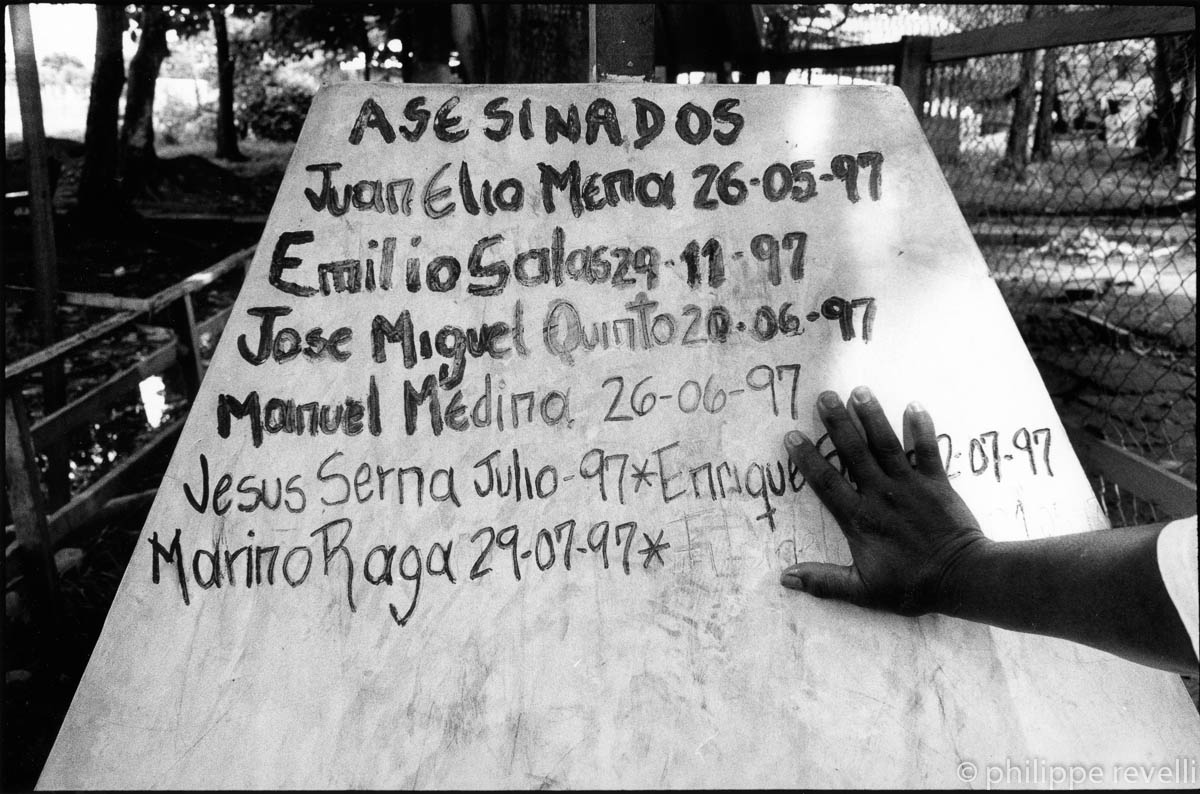 ASESINADOS
Juan Elio Mena 26-05-97
Emilio Salas 29-11-97
Jose Miguel Quinto 20-06-97
Manuel Medina 26-06-97
Jesus Serna Julio-97*Enrique 2-07-97
Marino Raga 29-07-97*
© philippe revelli